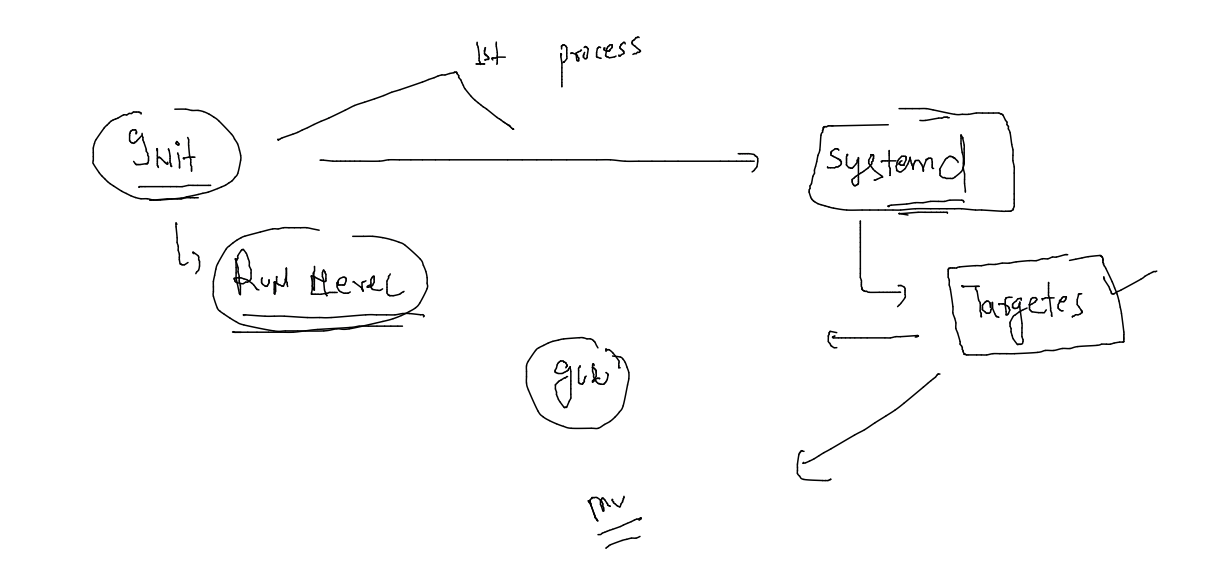 1st process
Init
systemd
Run level
Targetes
gui
mu